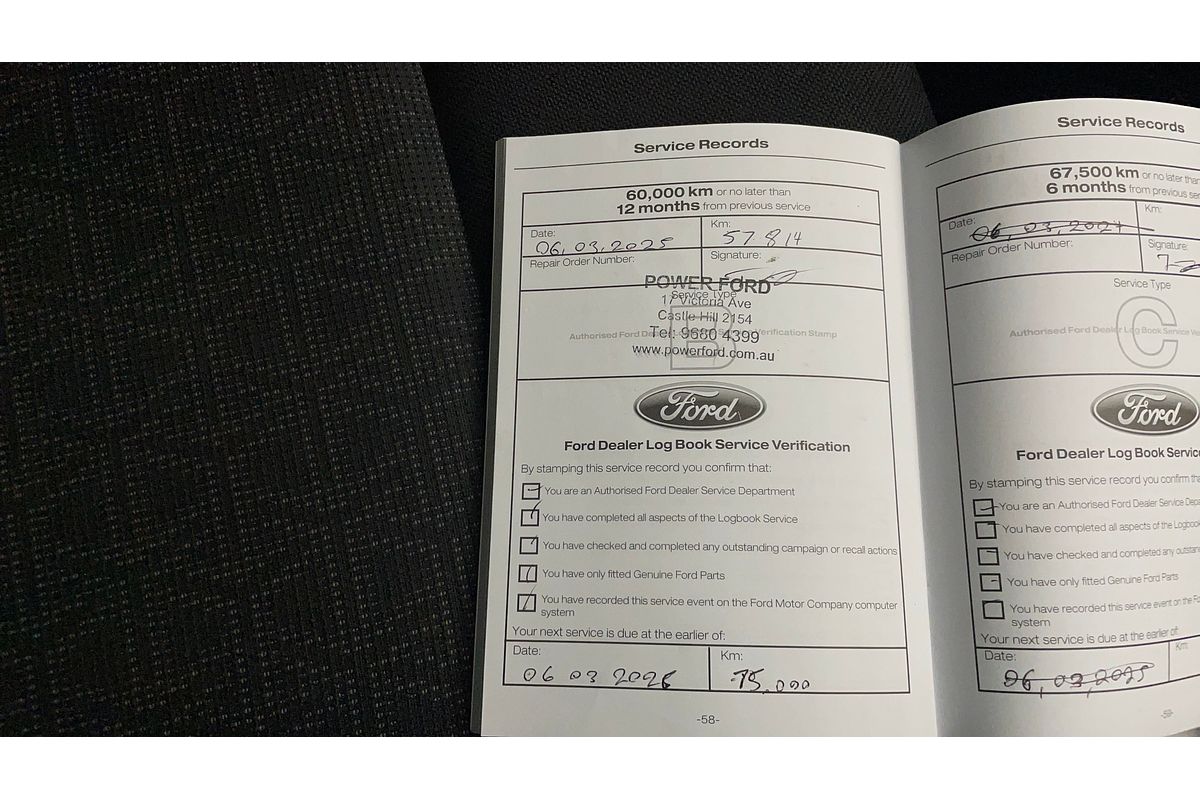 Service Records
60,000 km or no later than
12 months from previous service
Date:
06.03.2025
Km:
57814
Repair Order Number:
Signature:
POWER FORD
Service Type
17 Victoria Ave
Castle Hill 2154
B
Authorised Ford Verification Stamp
Tel: 9680 4399
www.powerford.com.au
Ford
Ford Dealer Log Book Service Verification
By stamping this service record you confirm that:
You are an Authorised Ford Dealer Service Department
You have completed all aspects of the Logbook Service
You have checked and completed any outstanding campaign or recall actions
You have only fitted Genuine Ford Parts
You have recorded this service event on the Ford Motor Company computer
system
Your next service is due at the earlier of:
Date:
06 03 2026
Km:
75.000
-58-
Service Records
67,500 km or no later than
6 months from previous
Date:
06.03.2024
Km:
Repair Order Number:
Signature:
Service Type
C
Authorised Ford Dealer Log Book Service
Ford
Ford Dealer Log Book
By stamping this service record you confirm
You are an Authorised Ford Dealer Service
You have completed all aspects of the
You have checked and completed any
You have only fitted Genuine Ford Parts
You have recorded this service event on the
system
Your next service is due at the earlier of:
Date:
06,03,2025
Km:
-59-